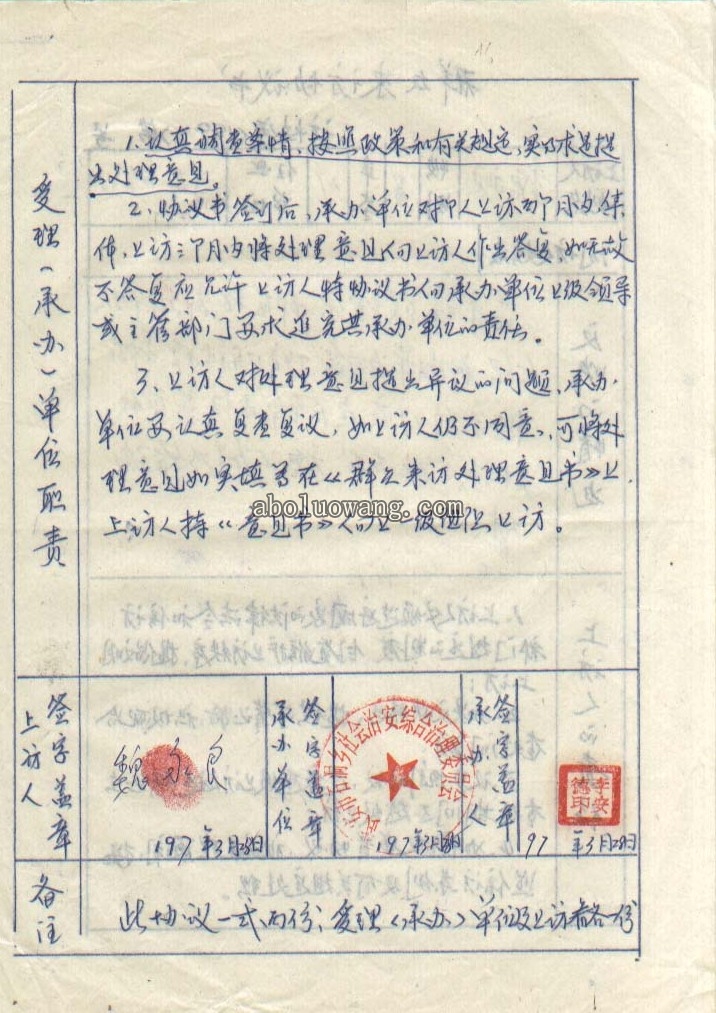 受理(承办)单位职责
1.认真调查案情,按照政策和有关规定,实事求是提
出处理意见。
2、协议书签订后,承办单位对个人上访两个月内集
体,上访三个月内将处理意见向上访人作出答复如无故
不答复应允许上访人持协议书向承办单位上级领导
或主管部门要求追究其承办单位的责任。
3、上访人对处理意见提出异议的问题,承办
单位要认真复查复议,如上访人仍不同意,可将处
理意见如实填写在《群众来访处理意见书》上,
上访人持《意见书》向上一级组织上访。
aboluowang.com
上访人
签字盖章
魏
197年3月28日
承办单位
签字盖章
乡社会治安综合治理委员会
197年3月28日
承办人
签字盖章
李安德印
97年3月28日
备注
此协议一式两份,受理(承办)单位及上访者各一份